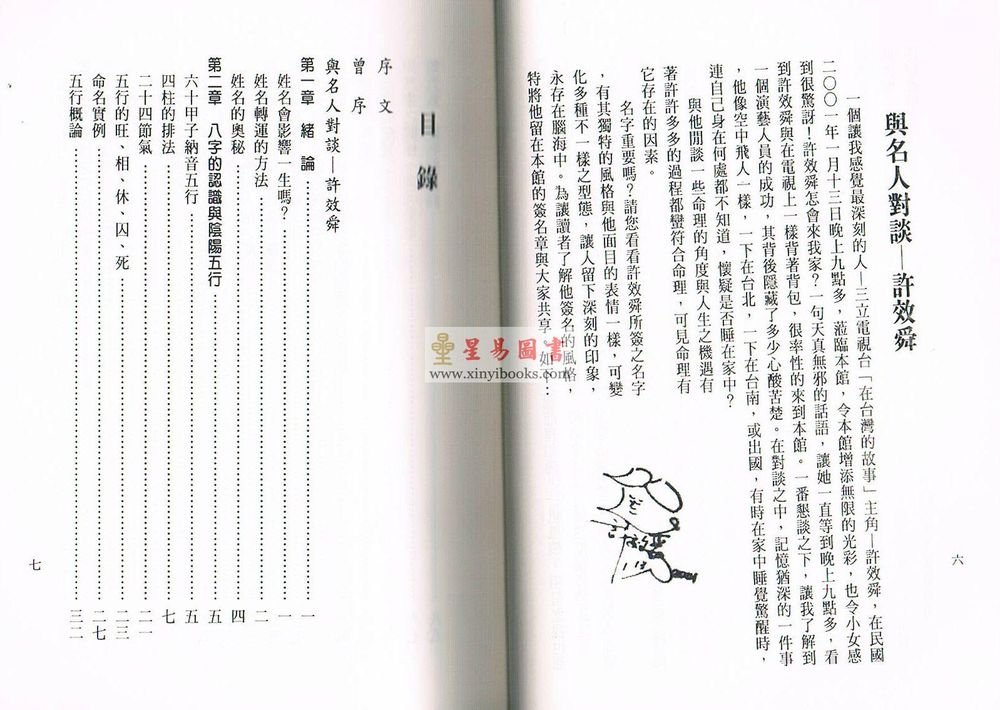 與名人對談—許效舜
一個讓我感覺最深刻的人—三立電視台「在台灣的故事」主角—許效舜，在民國
二〇〇一年一月十三日晚上九點多，蒞臨本館，令本館增添無限的光彩，也令小女感
到很驚訝！許效舜怎會來我家？一句天真無邪的話語，讓她一直等到晚上九點多，看
到許效舜與在電視上一樣背著背包，很率性的來到本館。一番懇談之下，讓我了解到
一個演藝人員的成功，其背後隱藏了多少心酸苦楚。在對談之中，記憶猶深的一件事
，他像空中飛人一樣，一下在台北，一下在台南，或出國，有時在家中睡覺驚醒時，
連自己身在何處都不知道，懷疑是否睡在家中？
與他閒談一些命理的角度與人生之機遇有
著許許多多的過程都蠻符合命理，可見命理有
它存在的因素。
名字重要嗎？請您看看許效舜所簽之名字
，有其獨特的風格與他面目的表情一樣，可變
化多種不一樣之型態，讓人留下深刻的印象，
永存在腦海中。為讓讀者了解他簽名的風格，
特將他留在本館的簽名章與大家共享，如下：
六
目錄
序文
曾序
與名人對談—許效舜
第一章 緒論……一
姓名會影響一生嗎？……一
姓名轉運的方法……二
姓名的奧秘……四
第二章 八字的認識與陰陽五行……五
六十甲子納音五行……五
四柱的排法……七
二十四節氣……二一
五行的旺、相、休、囚、死……二三
命名實例……二七
五行概論……三二
七
星易圖書
www.xinyibooks.com